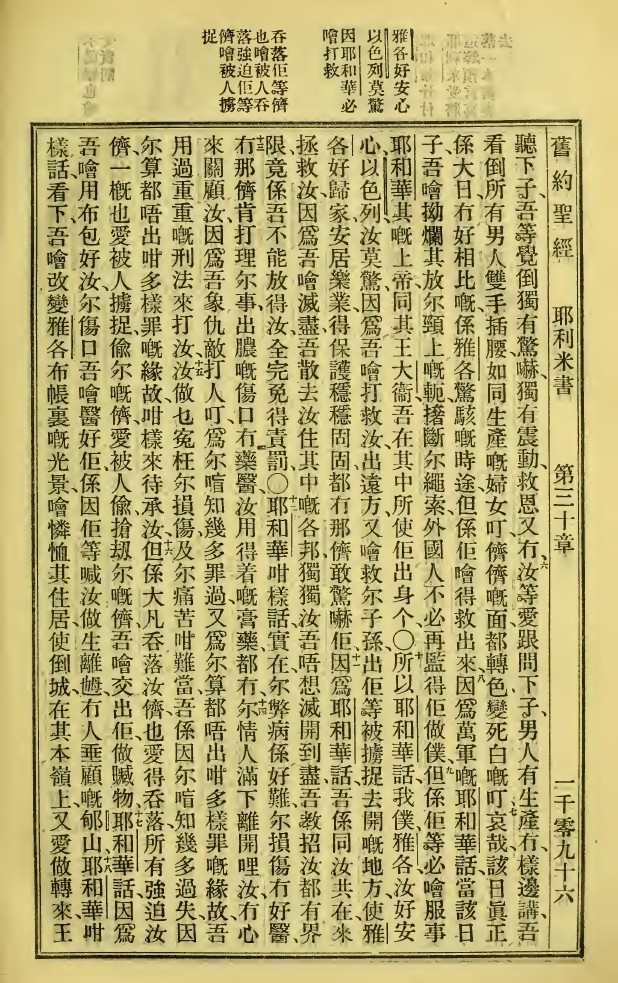 舊約聖經 耶利米書 第三十章 一千零九十六
雅各好安心
以色列莫驚
因耶和華必
噲打救
吞落佢等儕
也噲被人吞
落強迫佢等
儕噲被人擄
捉
聽下子、吾等覺倒獨有驚嚇、獨有震動、救恩又冇、六汝等愛跟問下子、男人有生產冇、七樣邊講吾
看倒所有男人雙手插腰、如同生產嘅婦女、叮儕儕嘅面都轉色變死白嘅叮、哀哉、該日眞正
係大日、冇好相比嘅、係雅各驚駭嘅時途、但係佢噲得救出來、八因爲萬軍嘅耶和華話、當該日
子吾噲拗爛其放尔頸上嘅軛、撦斷尔繩索、外國人不必再監得佢做僕、九但係佢等必噲服事
耶和華其嘅上帝、同其王大衞、吾在其中所使佢出身个、〇十所以耶和華話、我僕雅各汝好安
心、以色列汝莫驚、因爲吾噲打救汝、出遠方、又噲救尔子孫、出佢等被擄捉去開嘅地方、使雅
各好歸家安居樂業、得保護穩穩固固、都冇那儕敢驚嚇佢、十一因爲耶和華話、吾係同汝共在、來
拯救汝、因爲吾噲滅盡吾散去汝住其中嘅各邦、獨獨汝吾唔想滅開到盡、吾教招汝都有界
限、竟係吾不能放得汝、全完免得責罰、〇十二耶和華咁樣話、實在尔弊病係好難、尔損傷冇好醫、
十三冇那儕肯打理尔事、出膿嘅傷口、冇藥醫汝、用得着嘅膏藥都冇、十四尔情人滿下離開哩汝、冇心
來關顧汝、因爲吾象仇敵打人叮、爲尔唔知幾多罪過、又爲尔算都唔出咁多樣罪嘅緣故、吾
用過重重嘅刑法來打汝、十五汝做乜冤枉尔損傷、及尔痛苦咁難當、吾係因尔唔知幾多過失、因
尔算都唔出咁多樣罪嘅緣故、咁樣來待承汝、十六但係大凡吞落汝儕、也愛得吞落、所有強迫汝
儕、一槪也愛被人擄捉、偸尔嘅儕、愛被人偸、搶刼尔嘅儕、吾噲交出佢做贓物、十七耶和華話、因爲
吾噲用布包好汝、尔傷口吾噲醫好佢、係因佢等喊汝做生離嬤、冇人垂顧嘅郇山、十八耶和華咁
樣話、看下、吾噲改變雅各布帳裏嘅光景、噲憐恤其住居、使倒城在其本嶺上、又愛做轉來、王